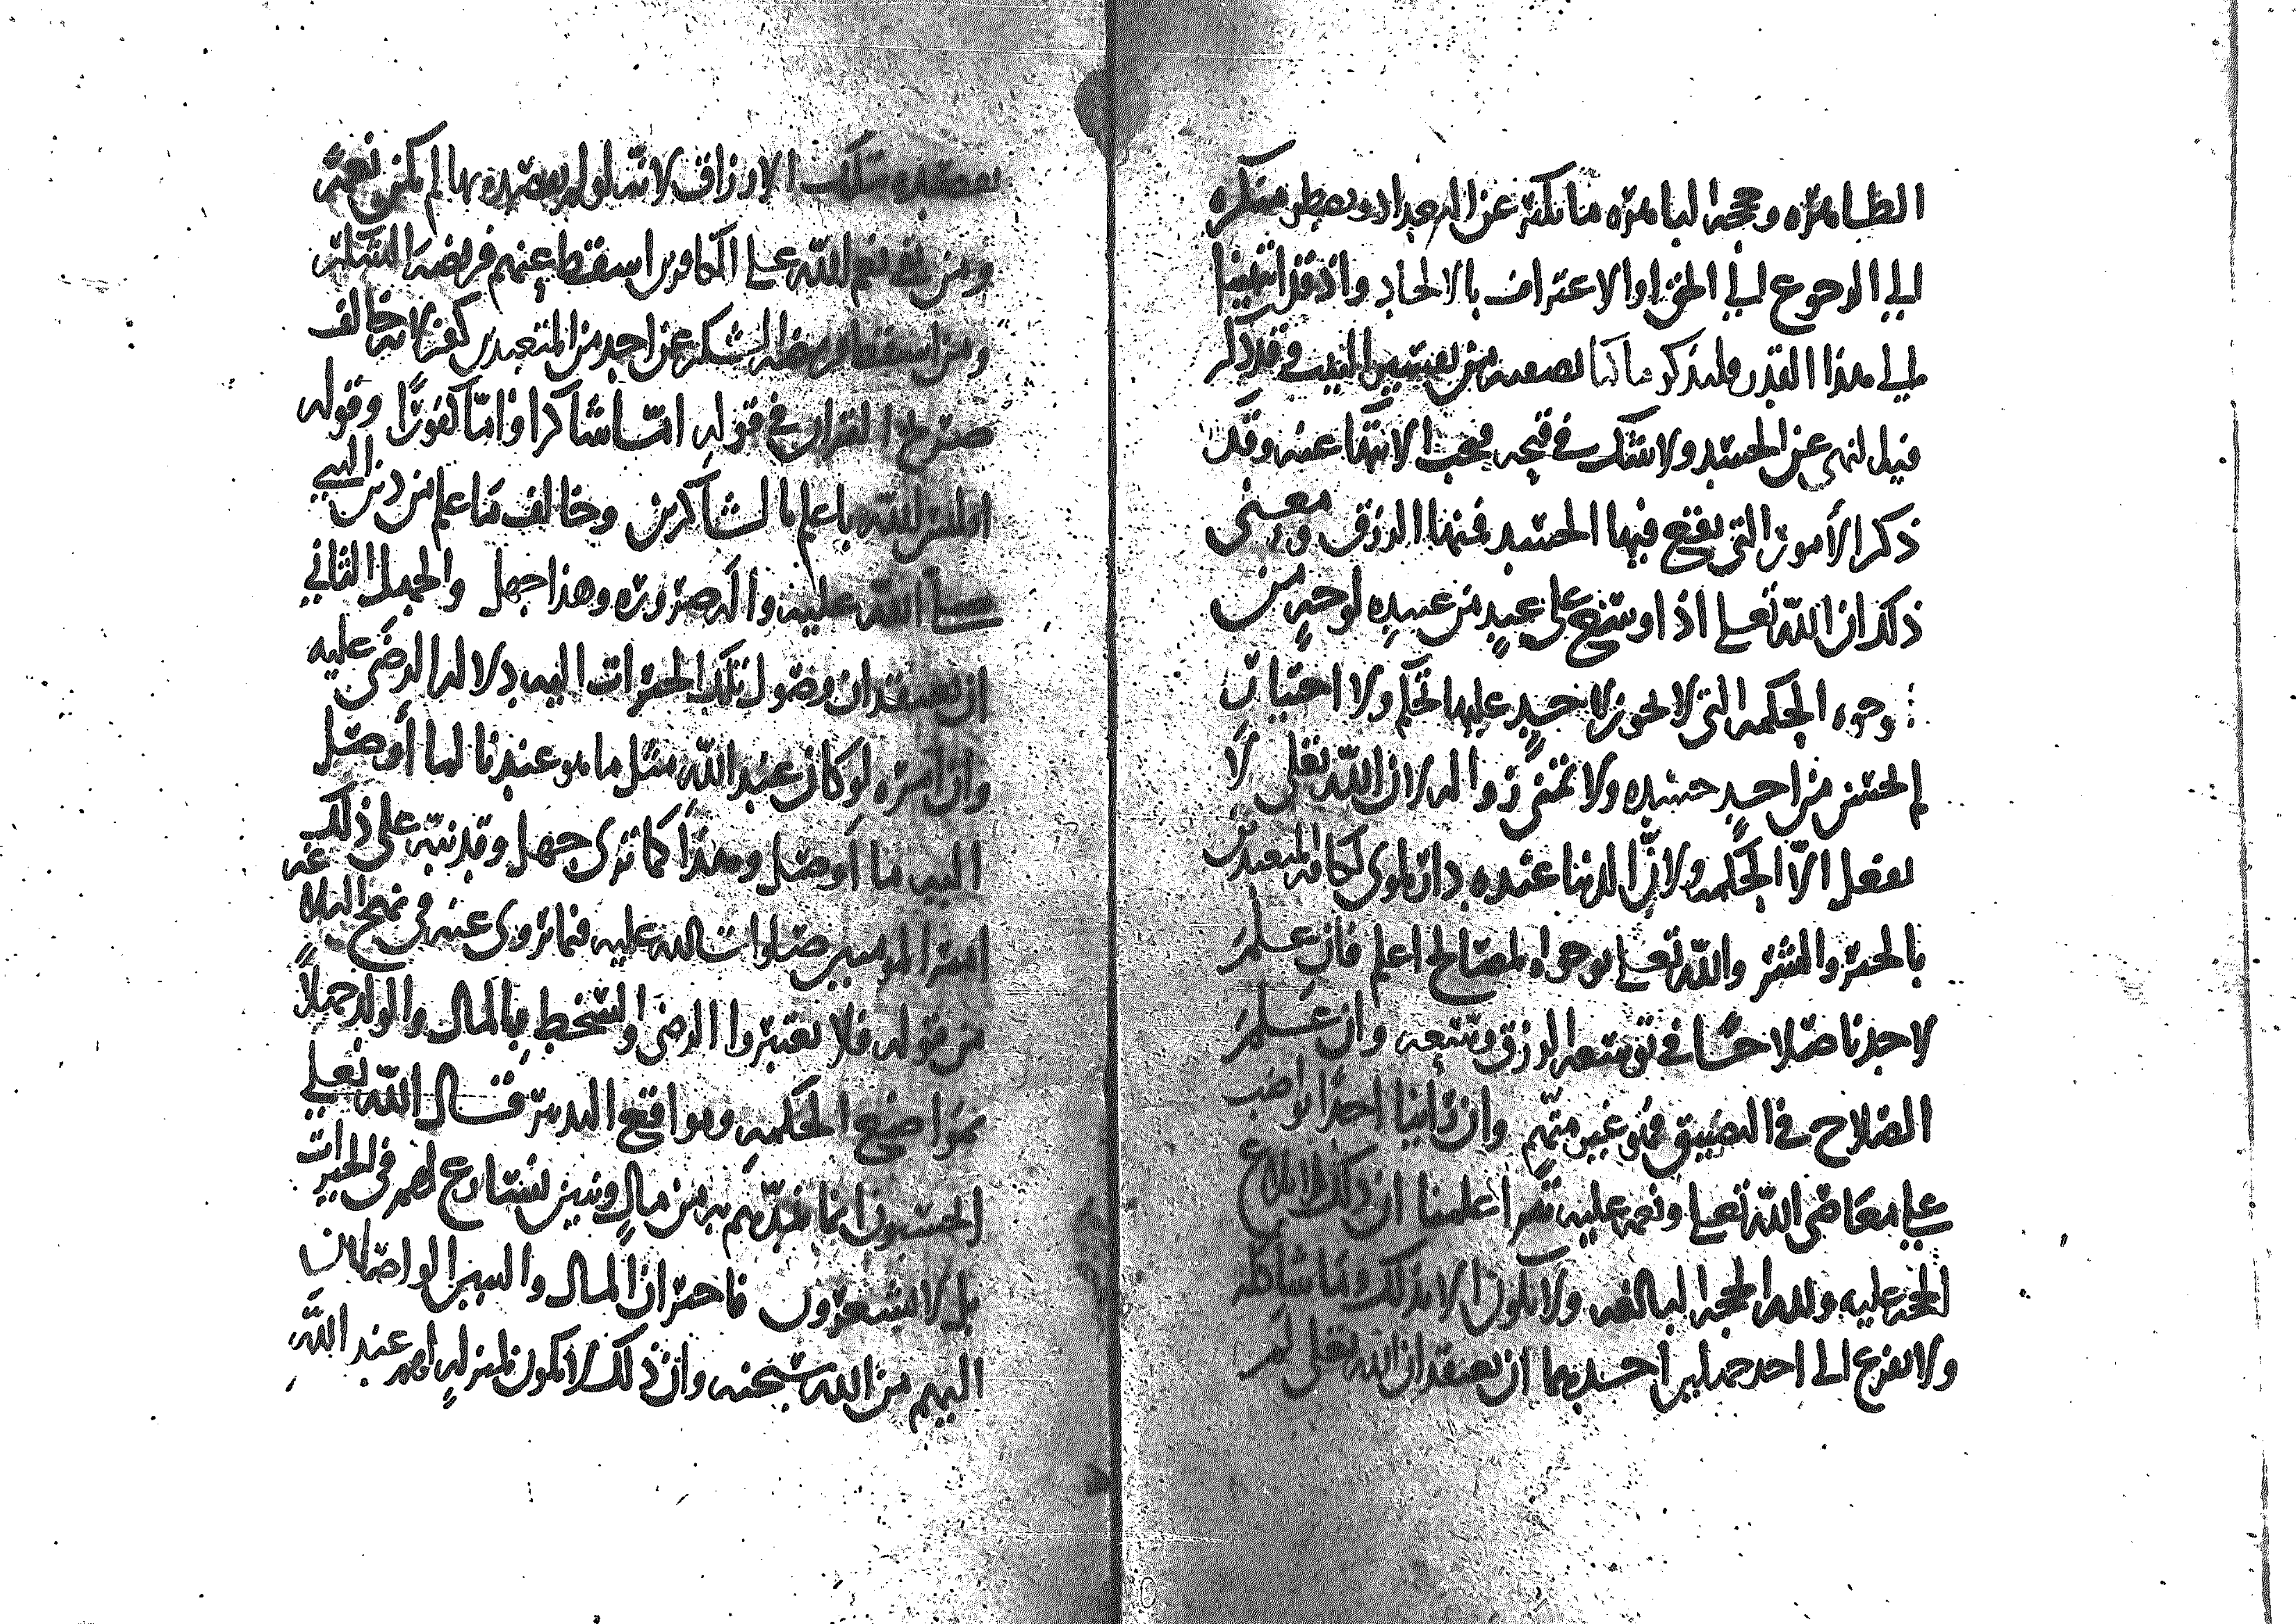 الظاهره وحججه الباهره ما يكثر عن التعداد ويضطر منكره
الى الرجوع الى الحق او الاعتراف بالالحاد واذ قد انتهينا
الى هذا القدر فلنذكر ما كنا بصدده من تفسير البيت وقد ذكر
فيه النهي عن الحسد ولا شك في قبحه فيجب الانتهاء عنه وقد
ذكر الأمور التي يقع فيها الحسد فمنها الرزق ومعنى
ذلك ان الله تعلى اذا وسّع على عبدٍ من عبيده لوجهٍ من
وجوه الحكمه التي لا يجوز لاحدٍ عليها تحكم ولا اختيار
لم يحسن من احدٍ حسده ولا تمنّي زواله لان الله تعلى لا
يفعل الّا الحكمه ولانّ الدنيا عنده دار بلوى لكافه المتعبدين
بالخير والشر والله تعلى بوجوه المصالح اعلم فان علم
لاحدنا صلاحًا في توسعه الرزق وسّعه وان علم
الصلاح في التضييق فهو غير متّهم وان راينا احدًا يواضب
على معاصي الله تعلى ونعمه عليه تترا علمنا ان ذلك ابلاغ
الحجه عليه ولله الحجه البالغه ولا يكون الا بذلك وما شاكله
ولا يفزع الى احد جهلين احدهما ان يعتقد ان الله تعلى لم
يقصده بتلك الارزاق لانّه لو لم يقصده بها لم تكن نعمه
ومن نفى نعم الله على الكافرين اسقط عنهم فريضه الشكر
ومن اسقط فريضه الشكر عن احد من المتعبدين كفر لانه خالف
صريح القران في قوله امّا شاكرا وامّا كفورًا وقوله
اليس الله باعلم بالشاكرين وخالف ما علم من دين النبي
صلى الله عليه واله ضروره وهذا جهل والجهل الثاني
ان يعتقد ان وصول تلك الخيرات اليه دلاله الرضى عليه
وان امره لو كان عند الله مثل ما هو عندنا لما أوصل
اليه ما اوصل وهذا كما ترى جهل وقد نبّه على ذلك
امير المومنين صلوات الله عليه فيما نروي عنه في نهج البلاغه
من قوله فلا تعتبروا الرضى والسخط بالمال والولد جهلاً
بمواضع الحكمه ومواقع التدبير قال الله تعلى
ايحسبون انما نمدّهم به من مالٍ وبنين نسارع لهم في الخيرات
بل لا يشعرون فاخبر ان المال والبنين الواصلين
اليهم من الله سبحنه وان ذلك لا يكون لمنزلهٍ لهم عند الله